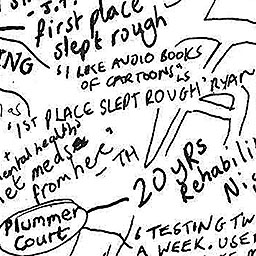 - J.T.
first place
slept rough
ING
"I LIKE AUDIO BOOKS
OF CARTOONS"
'1ST PLACE SLEPT ROUGH' RYAN
mental health
meds
from here"
- TH
20 yRs
Rehabili
Plummer
Court
'TESTING TW
A WEEK. USE